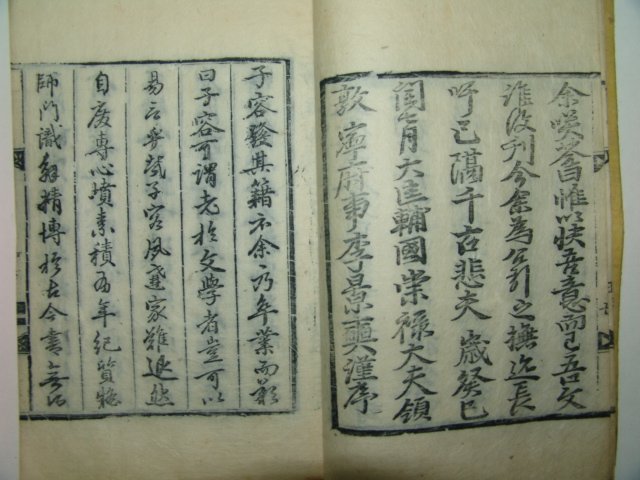 余咲答曰惟以快吾意而已吾文
誰復刊今余為公引之撫迹長
吁已隔千古悲夫 歲癸巳
閏七月大匡輔國崇祿大夫領
敦寧府事李景奭謹序
子容發其籍示余乃卒業而歎
曰子容可謂老於文學者豈可以
易言乎哉子容風蹇家難退然
自廢專心墳素積有年紀質疑
師門識解精博於古今書無所